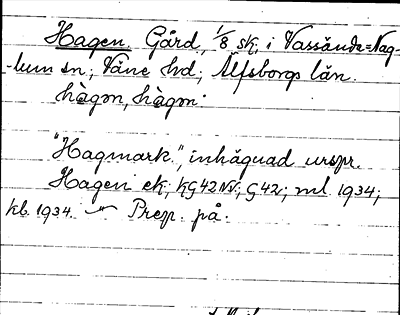 Hagen. Gård, 1/8 sk, i Vassända=Nag-
-lum sn; Väne hd; Älfsborgs län.
hàgɷn, hàgɷn.
"Hagmark", inhägnad urspr.
Hagen ek; KG42NV; G42; ml. 1934;
kb. 1934. Prep. på.